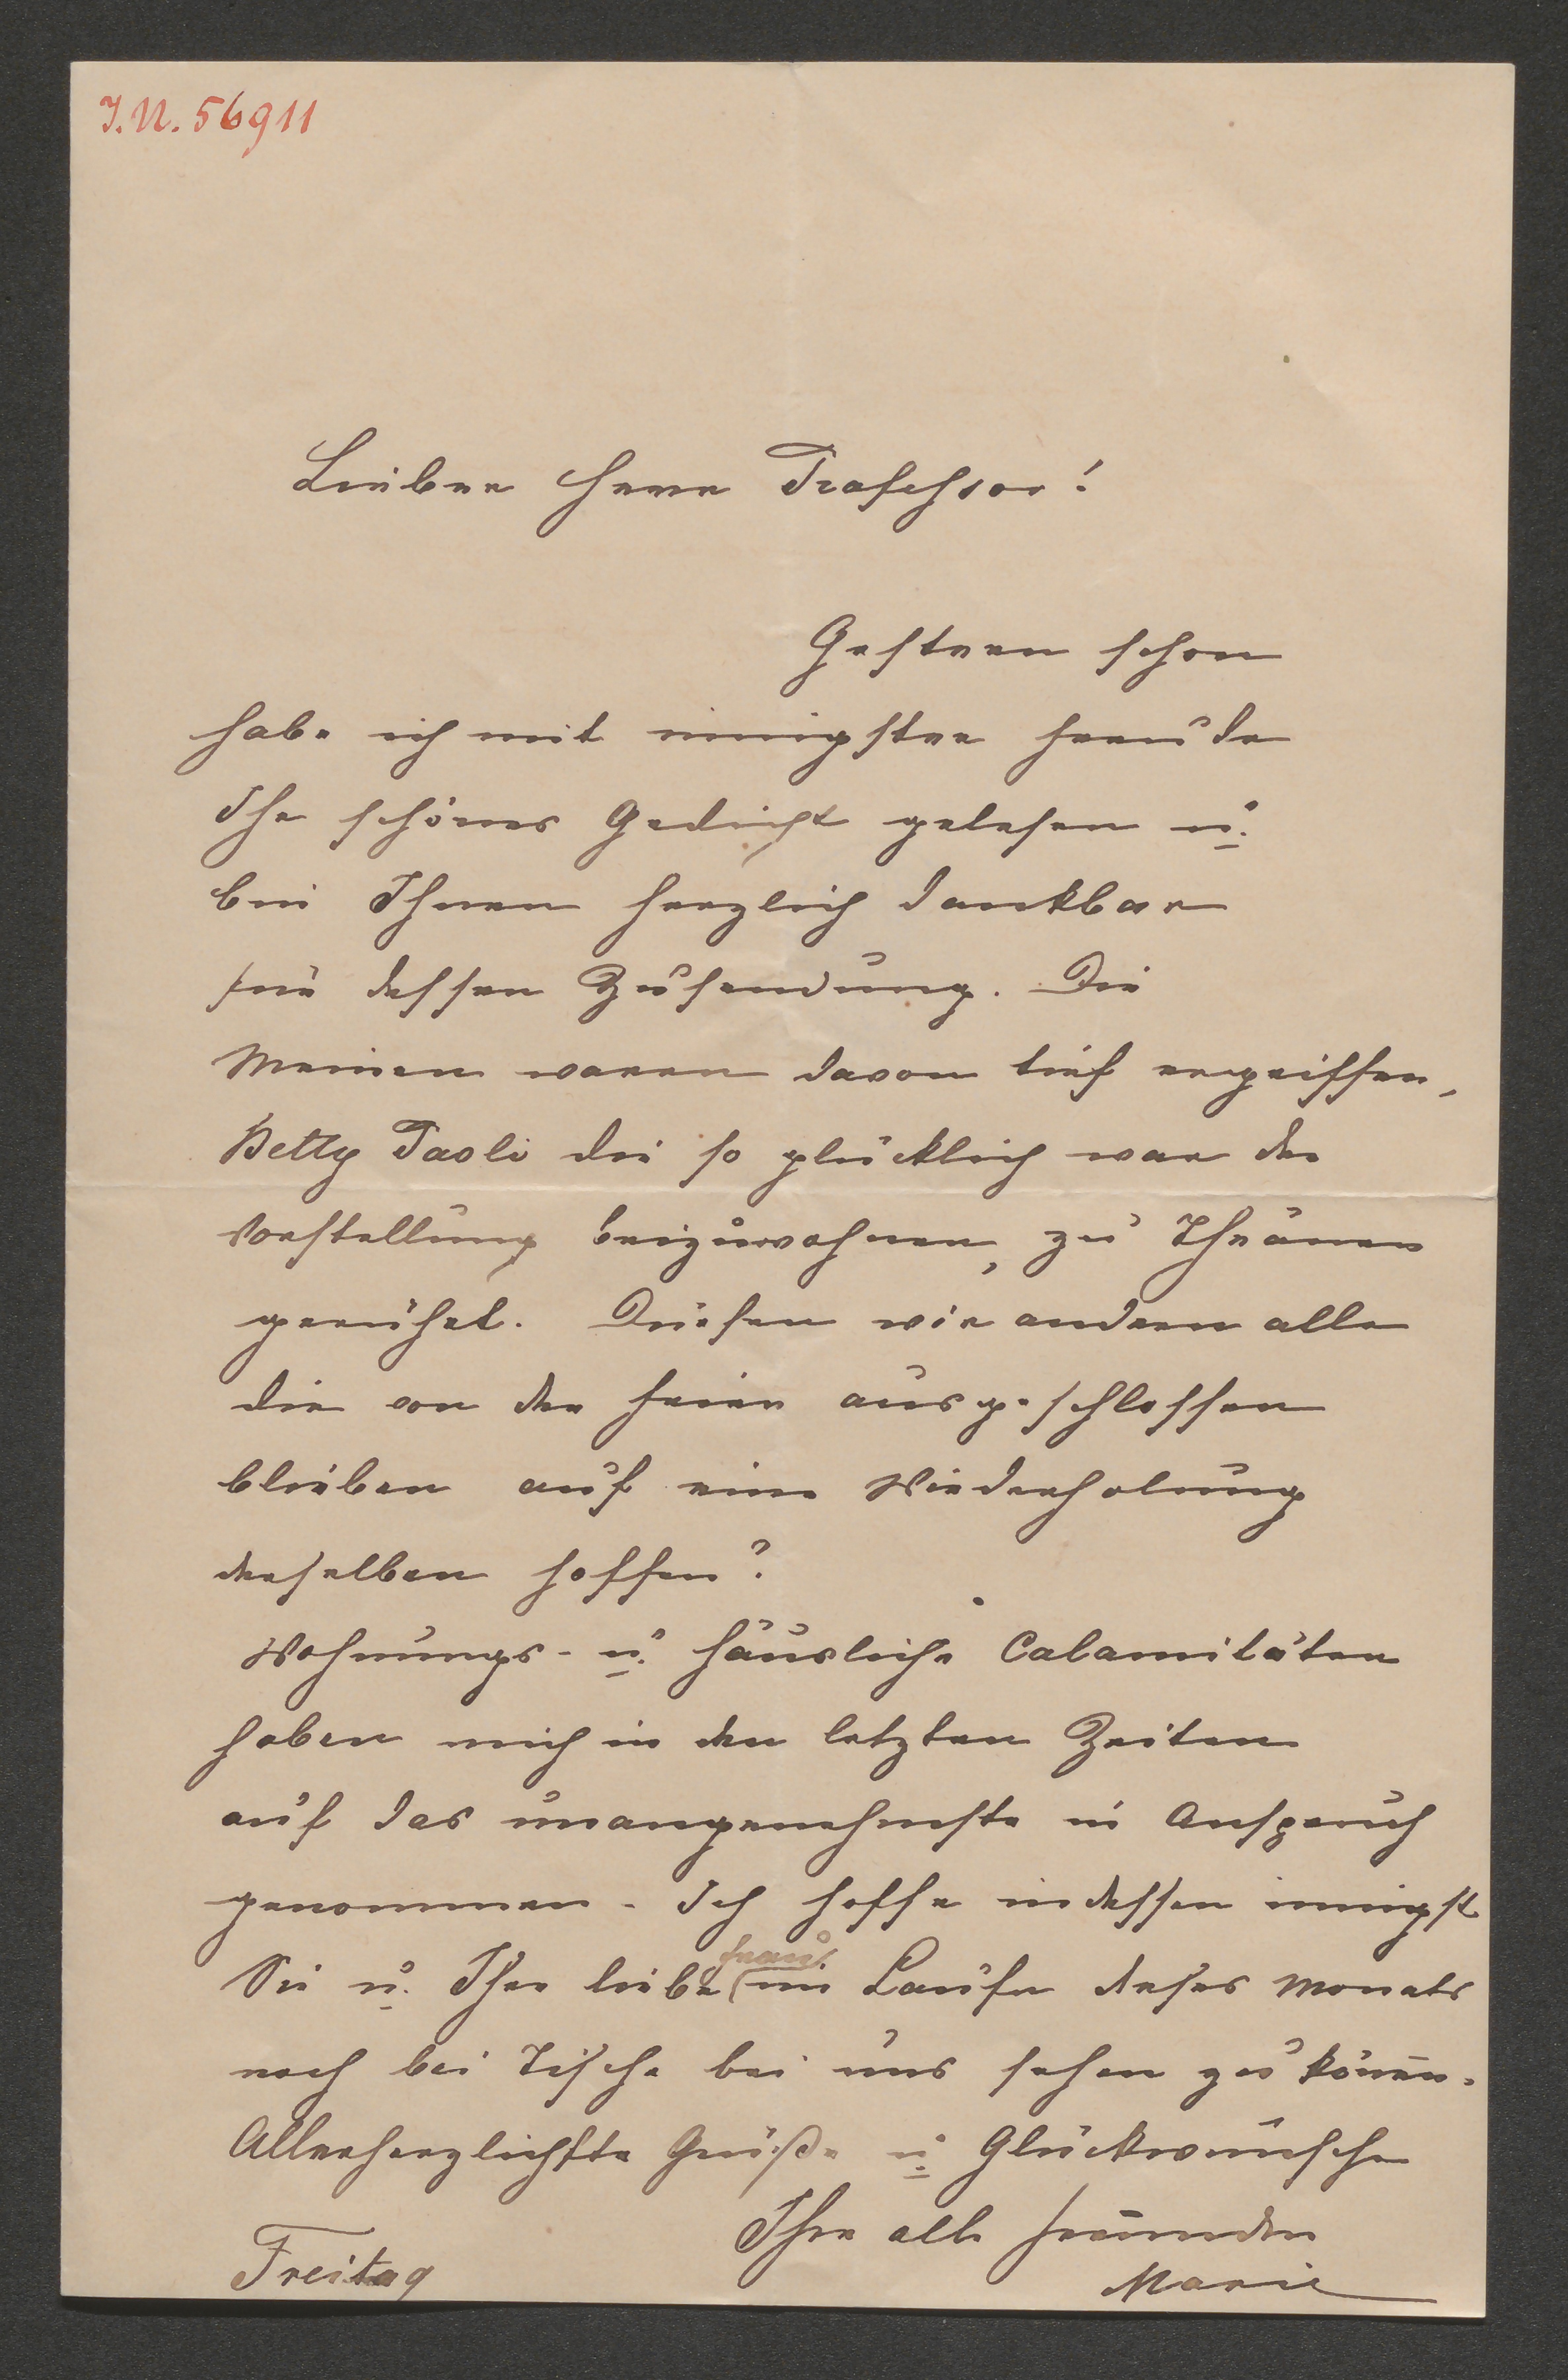 J.N. 56911
Lieber Herr Professor!
Gestern schon
habe ich mit innigster Freude
Ihr schönes Gedicht gelesen u.
bin Ihnen herzlich dankbar
für dessen Zusendung. Die
Meinen waren davon tief ergriffen,
Betty Paoli die so glücklich war der
Vorstellung beizuwohnen, zu Thränen
gerührt. Dürfen wir andern alle
die von der Feier ausgeschlossen
blieben auf eine Wiederholung
derselben hoffen?
Wohnungs- u. häusliche Calamitäten
haben mich in den letzten Zeiten
auf das unangenehmste in Anspruch
genommen. Ich hoffe indessen innigst
Sie u. Ihre liebe Frau im Laufe dieses Monats
noch bei Tische bei uns sehen zu können.
Allerherzlichste Grüße u. Glückwünsche
Ihre alte Freundin
Freitag Marie